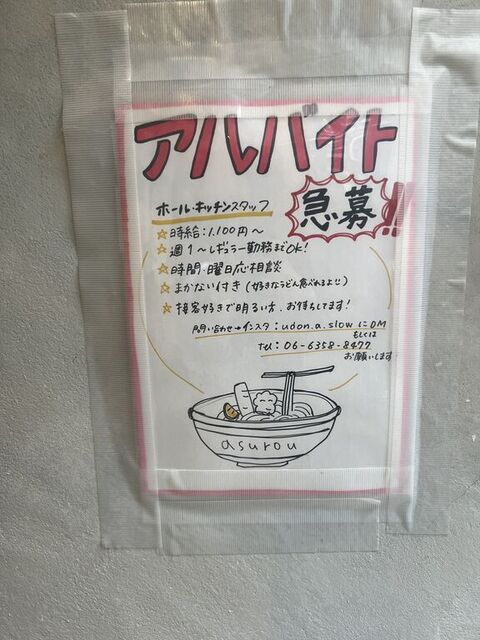 アルバイト
急募!!
ホール・キッチンスタッフ
☆時給:1,100円〜
☆週1〜レギュラー勤務までOK!
☆時間・曜日応相談
☆まかない付き(好きなうどん食べれるよ!!)
☆接客好きで明るい方、お待ちしてます!
問い合わせ→インスタ:udon.a.slowにDM
もしくは
TEL:06-6358-8477
お願いします
asurou